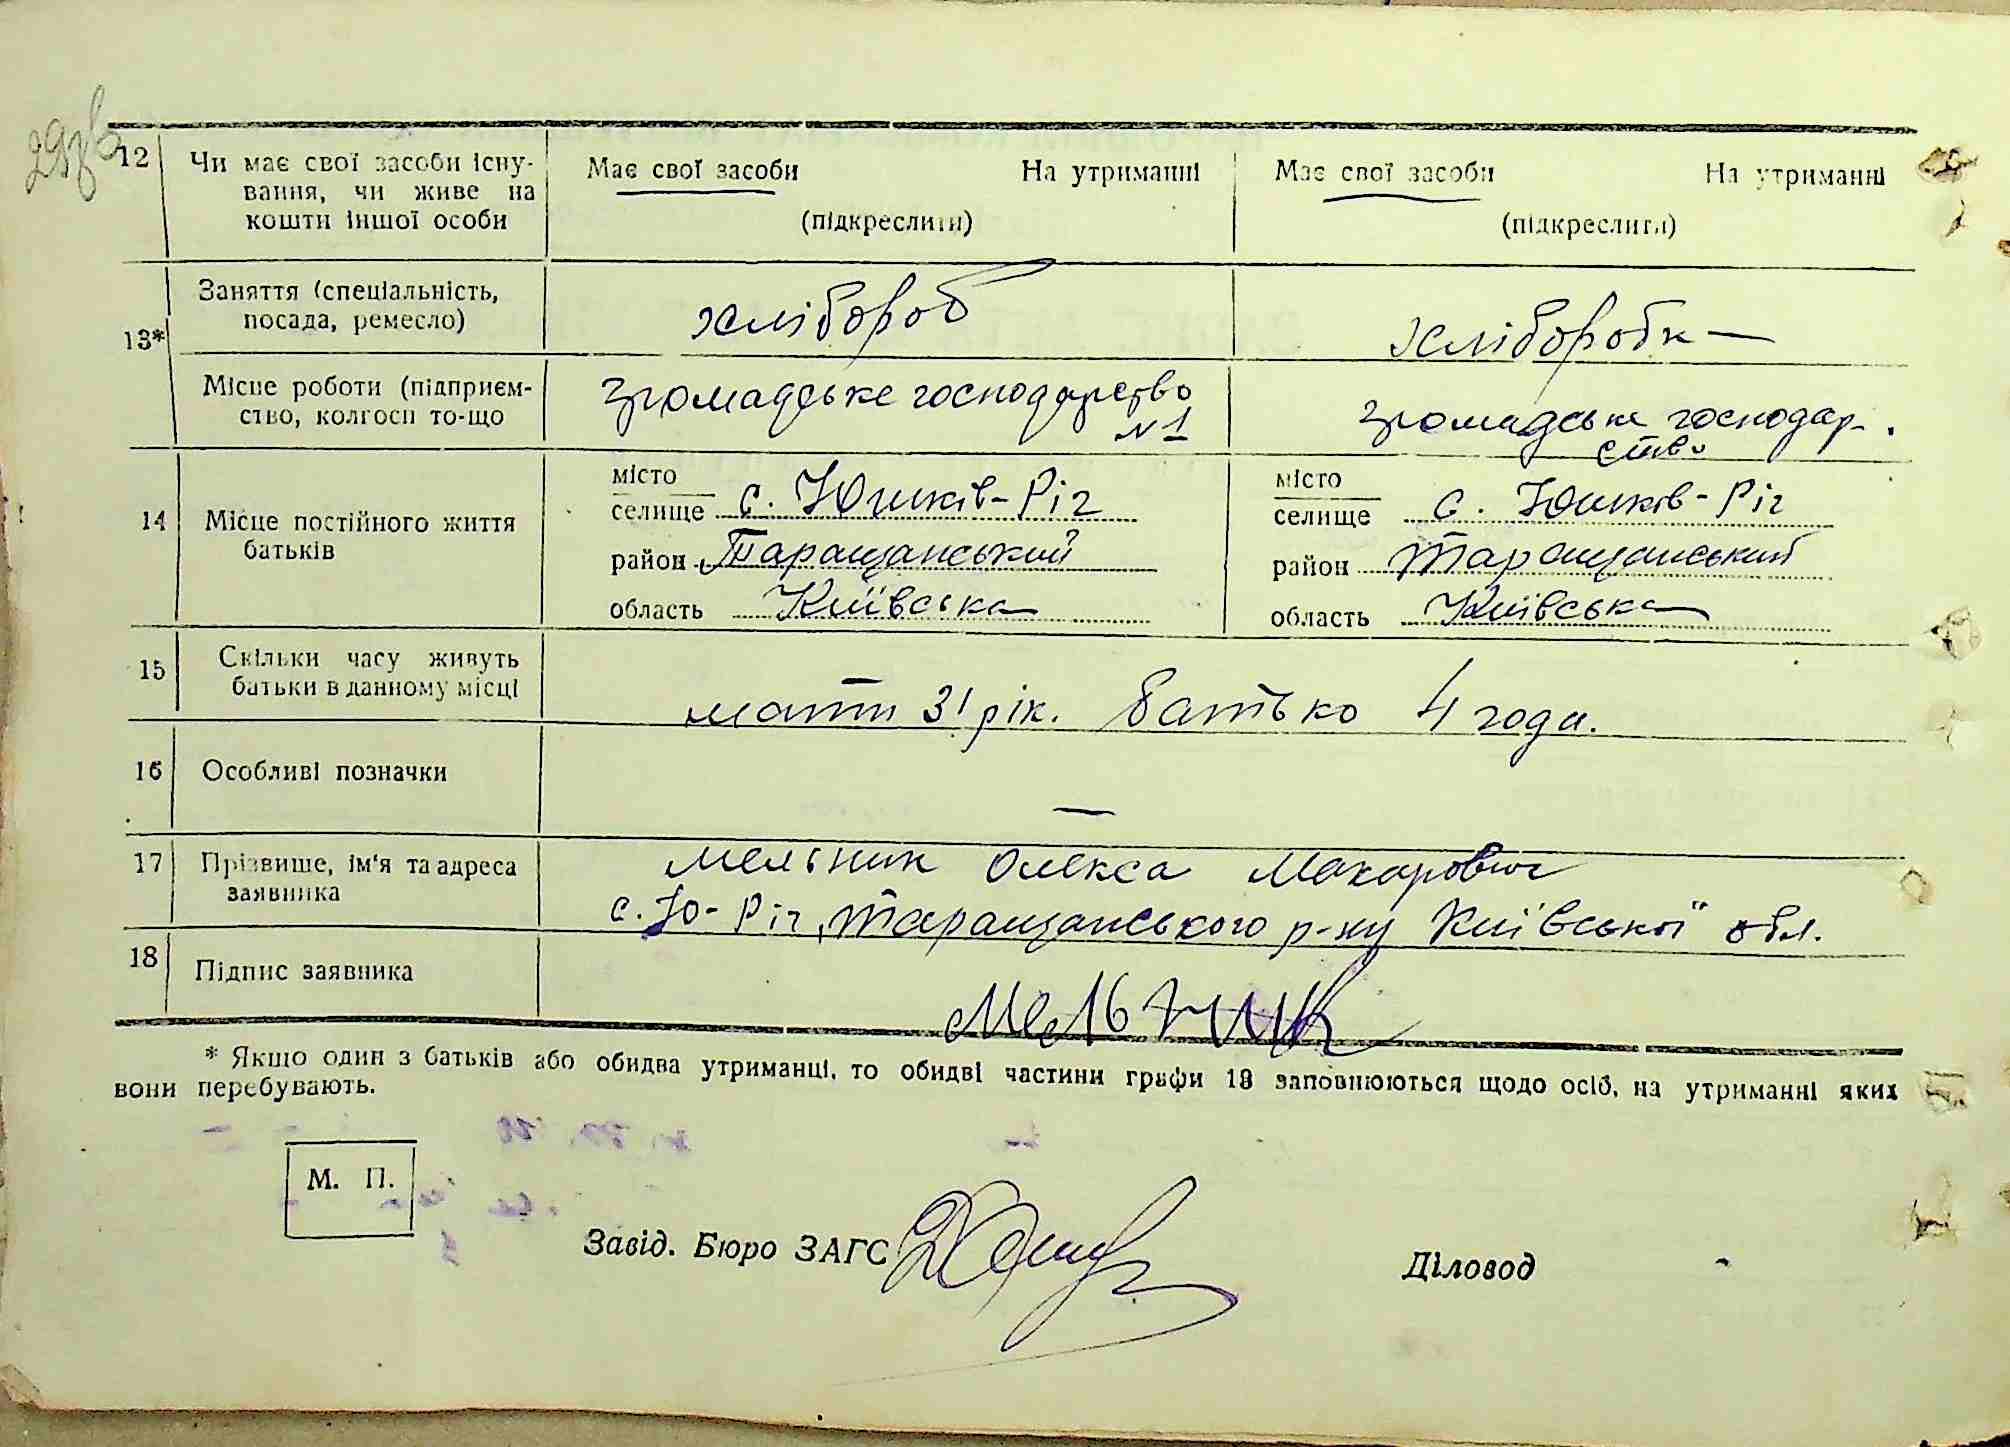 29зв
12 Чи має свої засоби існу- Має свої засоби На утриманні Має свої засоби На утриманні
вання, чи живе на
кошти іншої особи (підкреслити) (підкреслити)
13* Заняття (спеціальність, хлібороб хліборобка
посада, ремесло)
Місце роботи (підприєм- громадське господарство громадське господар-
ство, колгосп то-що №1 ство
14 Місце постійного життя
батьків
місто
селище с. Юшків-Ріг
район Таращанський
область Київська
місто
селище с. Юшків-Ріг
район Таращанський
область Київська
15 Скільки часу живуть
батьки в данному місці мати 31 рік. батько 4 года.
16 Особливі позначки —
17 Прізвище, ім'я та адреса Мельник Олекса Макарович
заявника с. Ю-Ріг, Таращанського р-ну Київської обл.
18 Підпис заявника Мельник
* Якщо один з батьків або обидва утриманці, то обидві частини графи 13 заповнюються щодо осіб, на утриманні яких
вони перебувають.
М. П.
Завід. Бюро ЗАГС Діловод